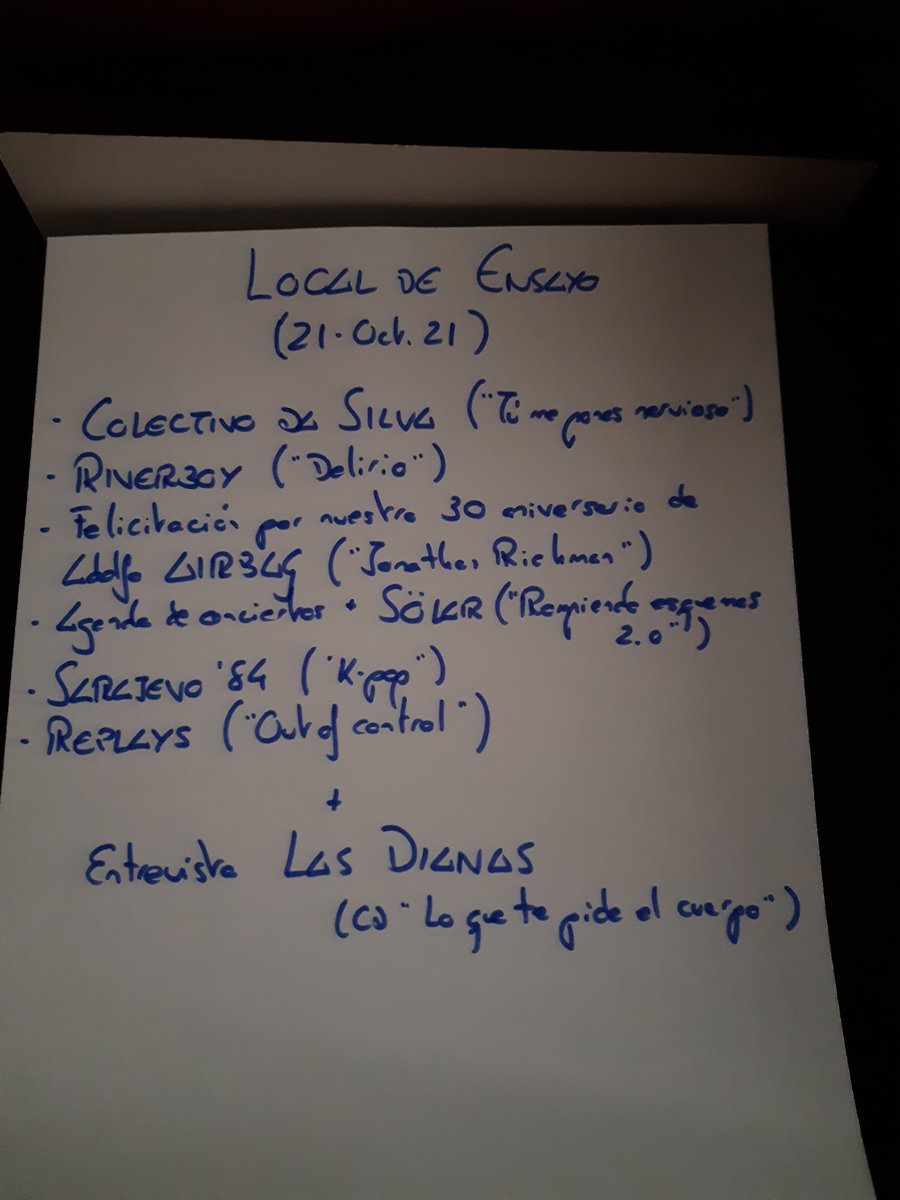 LOCAL DE ENSAYO
(21·Oct. 21)
· COLECTIVO DA SILVA ("Tú me pones nervioso")
· RIVERBOY ("Delirio")
· Felicitación por nuestro 30 aniversario de
Adolfo AIRBAG ("Jonathan Richman")
· Agenda de conciertos + SÖKAR ("Rompiendo esquemas
2.0")
· SARAJEVO '84 ("K-pop")
· REPLAYS ("Out of control")
+
Entrevista LAS DIANAS
(CD "Lo que te pide el cuerpo")